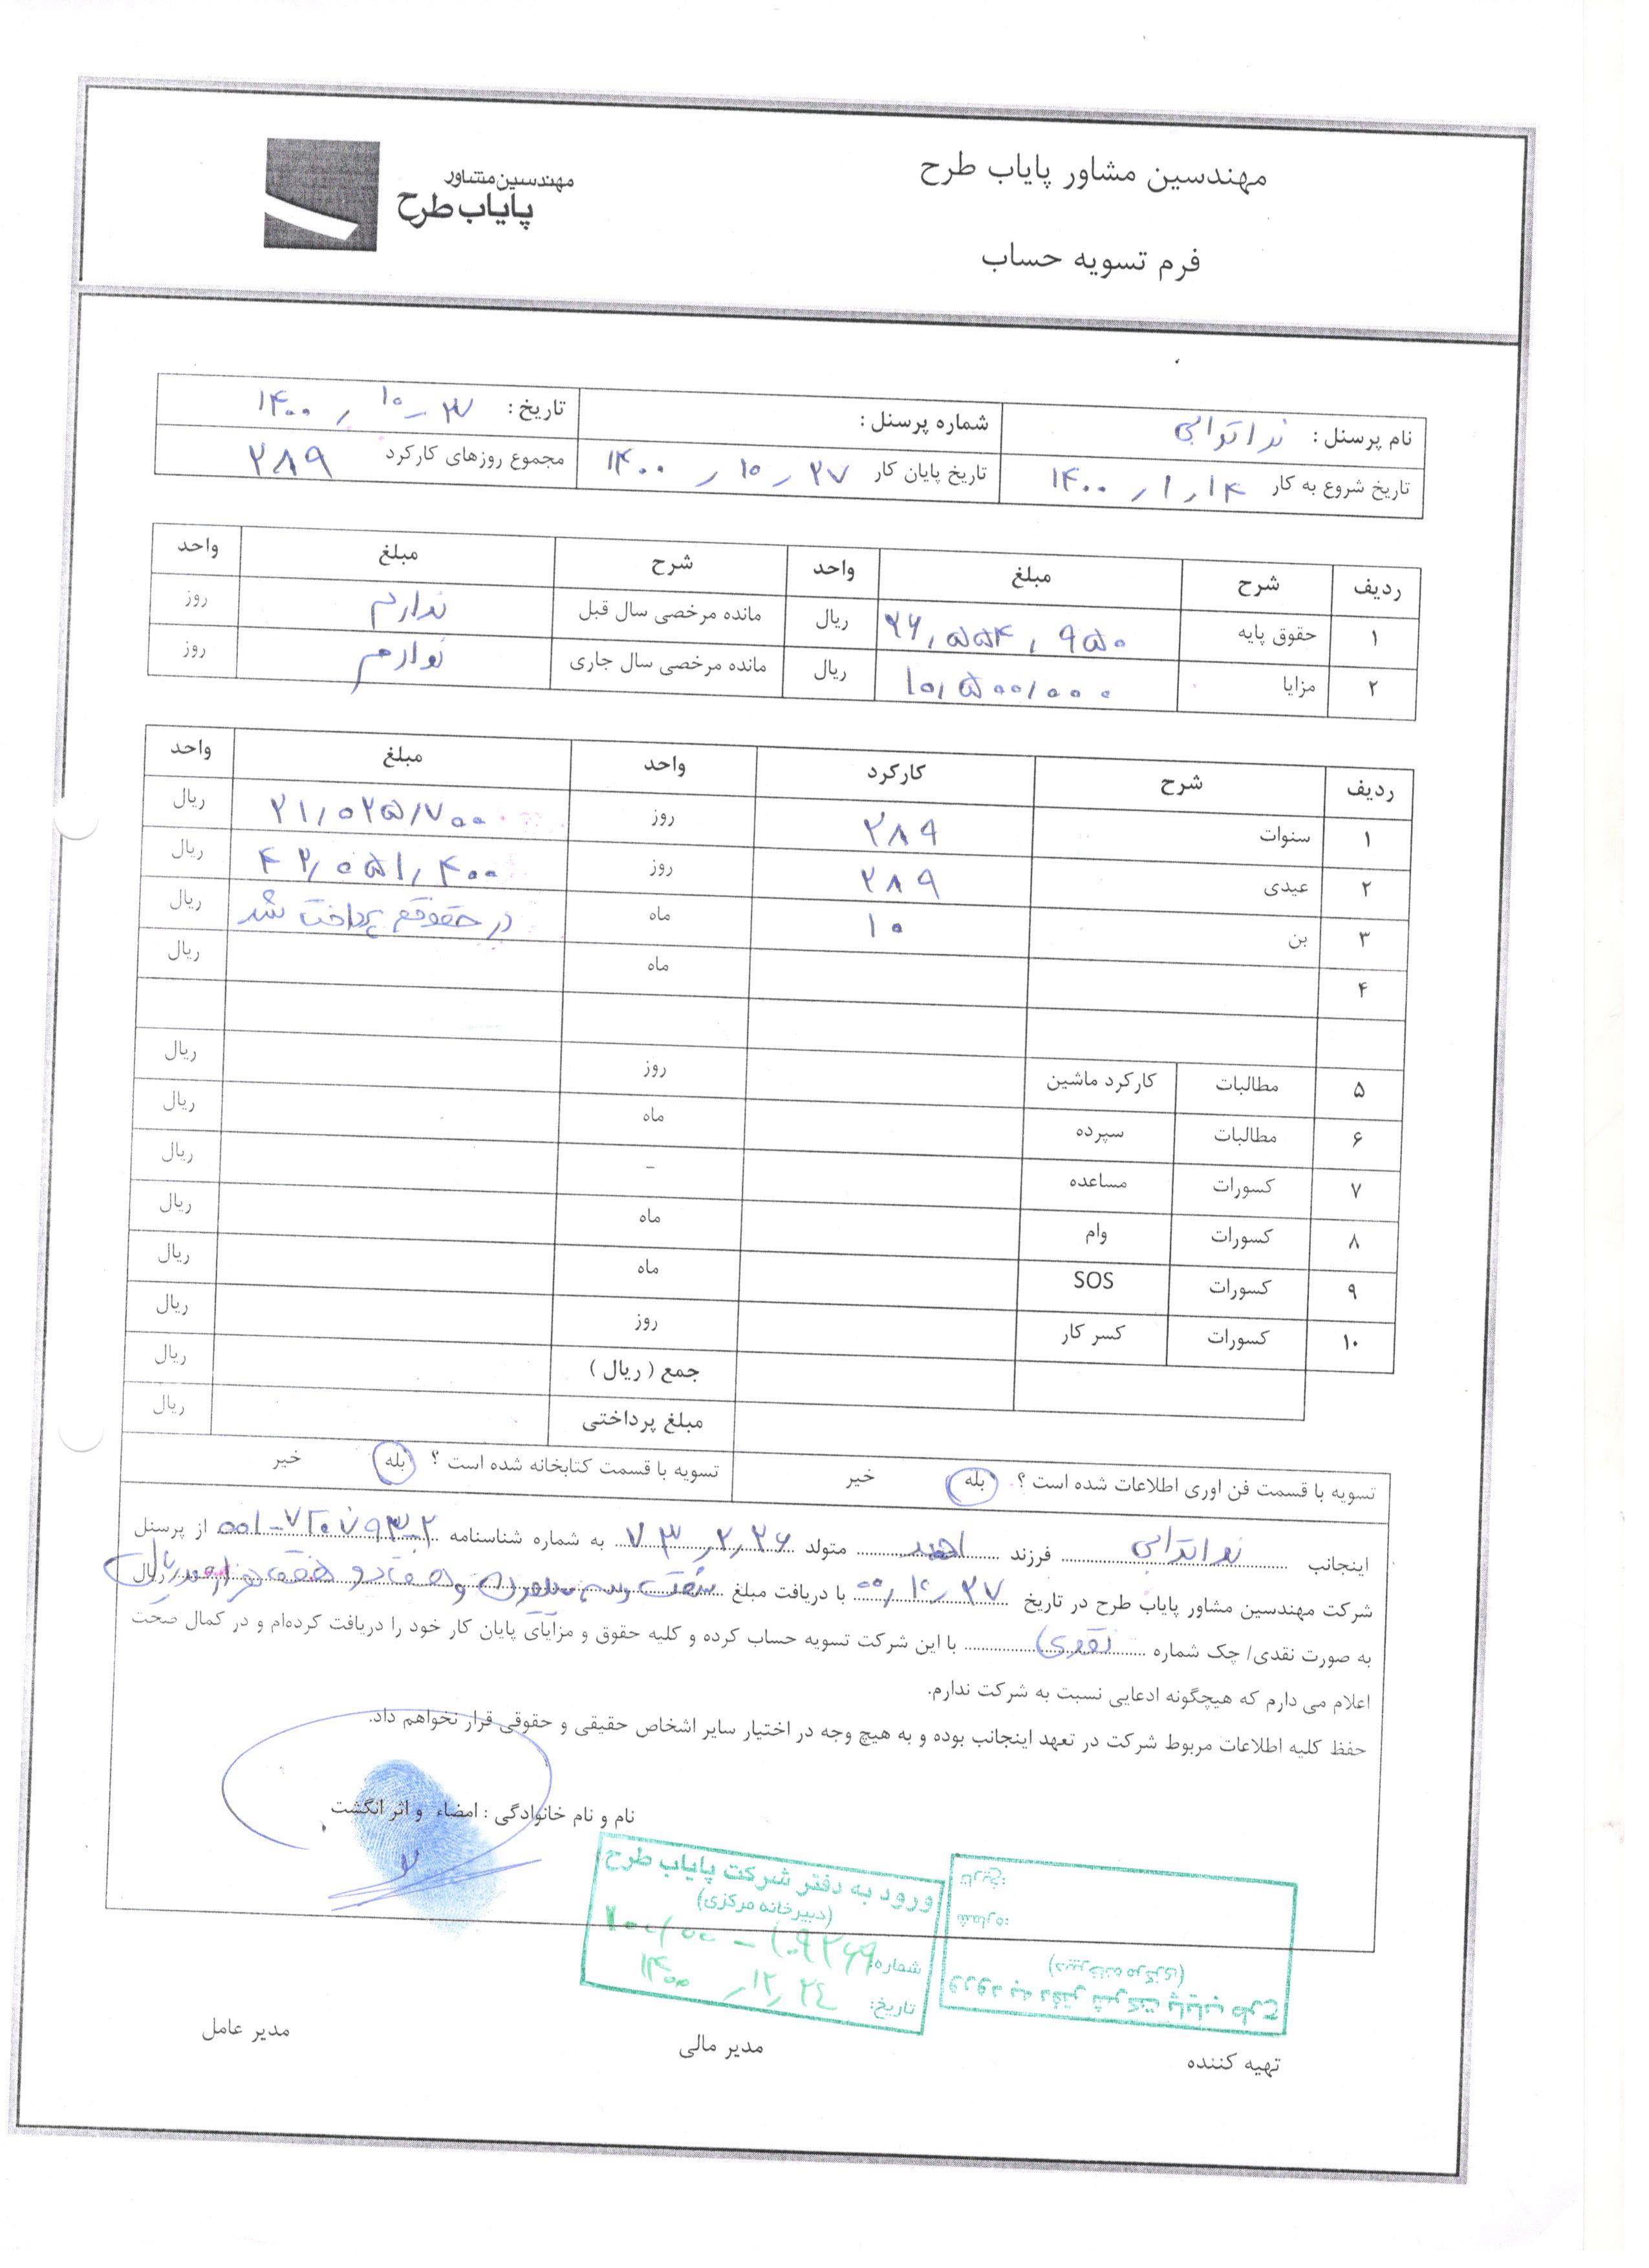 مهندسین مشاور پایاب طرح
مهندسین مشاور
پایاب طرح
فرم تسویه حساب
نام پرسنل : ندا ترابی شماره پرسنل : تاریخ : ۱۴۰۰ , ۱۰ , ۲۷
تاریخ شروع به کار ۱۴۰۰ , ۱ , ۱۴ تاریخ پایان کار ۱۴۰۰ , ۱۰ , ۲۷ مجموع روزهای کارکرد ۲۸۹
ردیف شرح مبلغ واحد شرح مبلغ واحد
۱ حقوق پایه ۲۶,۵۵۴,۹۵۰ ریال مانده مرخصی سال قبل ندارم روز
۲ مزایا ۱۰,۵۰۰,۰۰۰ ریال مانده مرخصی سال جاری ندارم روز
ردیف شرح کارکرد واحد مبلغ واحد
۱ سنوات ۲۸۹ روز ۲۱,۰۲۵,۷۰۰ ریال
۲ عیدی ۲۸۹ روز ۴۲,۰۵۱,۴۰۰ ریال
۳ بن ۱۰ ماه در حقوقم پرداخت شد ریال
۴ ماه ریال
۵ مطالبات کارکرد ماشین روز ریال
۶ مطالبات سپرده ماه ریال
۷ کسورات مساعده - ریال
۸ کسورات وام ماه ریال
۹ کسورات SOS ماه ریال
۱۰ کسورات کسر کار روز ریال
جمع ( ریال ) ریال
مبلغ پرداختی ریال
تسویه با قسمت فن اوری اطلاعات شده است ؟ بله خیر تسویه با قسمت کتابخانه شده است ؟ بله خیر
اینجانب ندا ترابی فرزند متولد ۷۳,۲,۲۶ به شماره شناسنامه از پرسنل
شرکت مهندسین مشاور پایاب طرح در تاریخ ۰۰,۱۰,۲۷ با دریافت مبلغ شصت و سه میلیون و هفتاد و هفت هزار و صد ریال ریال
به صورت نقدی/ چک شماره نقدی با این شرکت تسویه حساب کرده و کلیه حقوق و مزایای پایان کار خود را دریافت کرده‌ام و در کمال صحت
اعلام می دارم که هیچگونه ادعایی نسبت به شرکت ندارم.
حفظ کلیه اطلاعات مربوط شرکت در تعهد اینجانب بوده و به هیچ وجه در اختیار سایر اشخاص حقیقی و حقوقی قرار نخواهم داد.
نام و نام خانوادگی : امضاء و اثر انگشت
ورود به دفتر شرکت پایاب طرح
(دبیرخانه مرکزی)
شماره:
تاریخ: ۱۴۰۰ , ۱۲ , ۲٤
ورود به دفتر شرکت پایاب طرح
(دبیرخانه مرکزی)
شماره:
تاریخ:
تهیه کننده مدیر مالی مدیر عامل